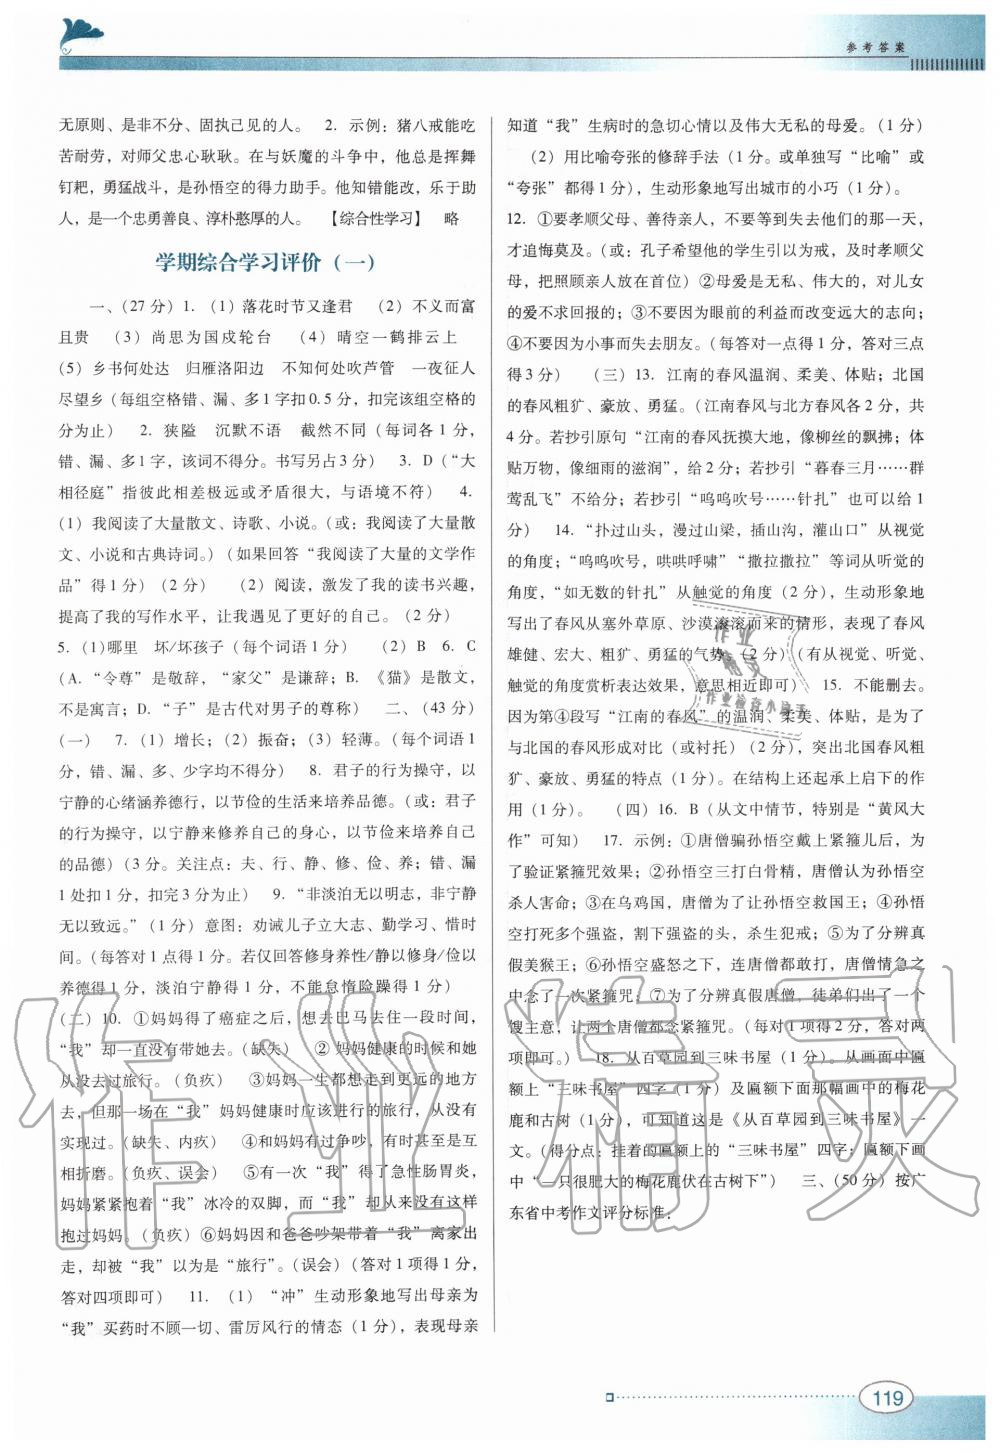 参考答案
无原则、是非不分、固执己见的人。 2. 示例：猪八戒能吃
苦耐劳，对师父忠心耿耿。在与妖魔的斗争中，他总是挥舞
钉耙，勇猛战斗，是孙悟空的得力助手。他知错能改，乐于助
人，是一个忠勇善良、淳朴憨厚的人。 【综合性学习】 略
学期综合学习评价（一）
一、（27 分）1. （1）落花时节又逢君 （2）不义而富
且贵 （3）尚思为国戍轮台 （4）晴空一鹤排云上
（5）乡书何处达 归雁洛阳边 不知何处吹芦管 一夜征人
尽望乡（每组空格错、漏、多1字扣0.5分，扣完该组空格的
分为止） 2. 狭隘 沉默不语 截然不同（每词各1分，
错、漏、多1字，该词不得分。书写另占3分） 3. D（“大
相径庭”指彼此相差极远或矛盾很大，与语境不符） 4.
（1）我阅读了大量散文、诗歌、小说。（或：我阅读了大量散
文、小说和古典诗词。）（如果回答“我阅读了大量的文学作
品”得1分）（2分） （2）阅读，激发了我的读书兴趣，
提高了我的写作水平，让我遇见了更好的自己。（2分）
5. （1）哪里 坏/坏孩子（每个词语1分） （2）B 6. C
（A. “令尊”是敬辞，“家父”是谦辞；B. 《猫》是散文，
不是寓言；D. “子”是古代对男子的尊称） 二、（43分）
（一） 7. （1）增长；（2）振奋；（3）轻薄。（每个词语1
分，错、漏、多、少字均不得分） 8. 君子的行为操守，以
宁静的心绪涵养德行，以节俭的生活来培养品德。（或：君子
的行为操守，以宁静来修养自己的身心，以节俭来培养自己
的品德）（3分。关注点：夫、行、静、修、俭、养；错、漏
1处扣1分，扣完3分为止） 9. “非淡泊无以明志，非宁静
无以致远。”（1分）意图：劝诫儿子立大志、勤学习、惜时
间。（每答对1点得1分。若仅回答修身养性/静以修身/俭以
养德得1分，淡泊宁静得1分，不能怠惰险躁得1分）
（二）10. ①妈妈得了癌症之后，想去巴马去住一段时间，
“我”却一直没有带她去。（缺失） ②妈妈健康的时候和她
从没去过旅行。（负疚） ③妈妈一生都想走到更远的地方
去，但那一场在“我”妈妈健康时应该进行的旅行，从没有
实现过。（缺失、内疚） ④和妈妈有过争吵，有时甚至是互
相折磨。（负疚、误会） ⑤有一次“我”得了急性肠胃炎，
妈妈紧紧抱着“我”冰冷的双脚，而“我”却从来没有这样
抱过妈妈。（负疚）⑥妈妈因和爸爸吵架带着“我”离家出
走，却被“我”以为是“旅行”。（误会）（答对1项得1分，
答对四项即可） 11. （1）“冲”生动形象地写出母亲为
“我”买药时不顾一切、雷厉风行的情态（1分），表现母亲
知道“我”生病时的急切心情以及伟大无私的母爱。（1分）
（2）用比喻夸张的修辞手法（1分。或单独写“比喻”或
“夸张”都得1分），生动形象地写出城市的小巧（1分）。
12. ①要孝顺父母、善待亲人，不要等到失去他们的那一天，
才追悔莫及。（或：孔子希望他的学生引以为戒，及时孝顺父
母，把照顾亲人放在首位）②母爱是无私、伟大的，对儿女
的爱不求回报的；③不要因为眼前的利益而改变远大的志向；
④不要因为小事而失去朋友。（每答对一点得1分，答对三点
得3分） （三）13. 江南的春风温润、柔美、体贴；北国
的春风粗犷、豪放、勇猛。（江南春风与北方春风各2分，共
4分。若抄引原句“江南的春风抚摸大地，像柳丝的飘拂；体
贴万物，像细雨的滋润”，给2分；若抄引“暮春三月……群
莺乱飞”不给分；若抄引“呜呜吹号……针扎”也可以给1
分） 14. “扑过山头，漫过山梁，插山沟，灌山口”从视觉
的角度；“呜呜吹号，哄哄呼啸”“撒拉撒拉”等词从听觉的
角度，“如无数的针扎”从触觉的角度（2分），生动形象地
写出了春风从塞外草原、沙漠滚滚而来的情形，表现了春风
雄健、宏大、粗犷、勇猛的气势（2分）（有从视觉、听觉、
触觉的角度赏析表达效果，意思相近即可） 15. 不能删去。
因为第④段写“江南的春风”的温润、柔美、体贴，是为了
与北国的春风形成对比（或衬托）（2分），突出北国春风粗
犷、豪放、勇猛的特点（1分）。在结构上还起承上启下的作
用（1分）。 （四）16. B（从文中情节，特别是“黄风大
作”可知） 17. 示例：①唐僧骗孙悟空戴上紧箍儿后，为
了验证紧箍咒效果；②孙悟空三打白骨精，唐僧认为孙悟空
杀人害命；③在乌鸡国，唐僧为了让孙悟空救国王；④孙悟
空打死多个强盗，割下强盗的头，杀生犯戒；⑤为了分辨真
假美猴王；⑥孙悟空盛怒之下，连唐僧都敢打，唐僧情急之
中念了一次紧箍咒；⑦为了分辨真假唐僧，徒弟们出了一个
馊主意，让两个唐僧都念紧箍咒。（每对1项得2分，答对两
项即可。） 18. 从百草园到三味书屋（1分）。从画面中匾
额上“三味书屋”四字（1分）及匾额下面那幅画中的梅花
鹿和古树（1分），可知道这是《从百草园到三味书屋》一
文。（得分点：挂着的匾额上的“三味书屋”四字；匾额下画
中“一只很肥大的梅花鹿伏在古树下”） 三、（50分）按广
东省中考作文评分标准。
作业精灵
作业检查小助手
作业精灵
119